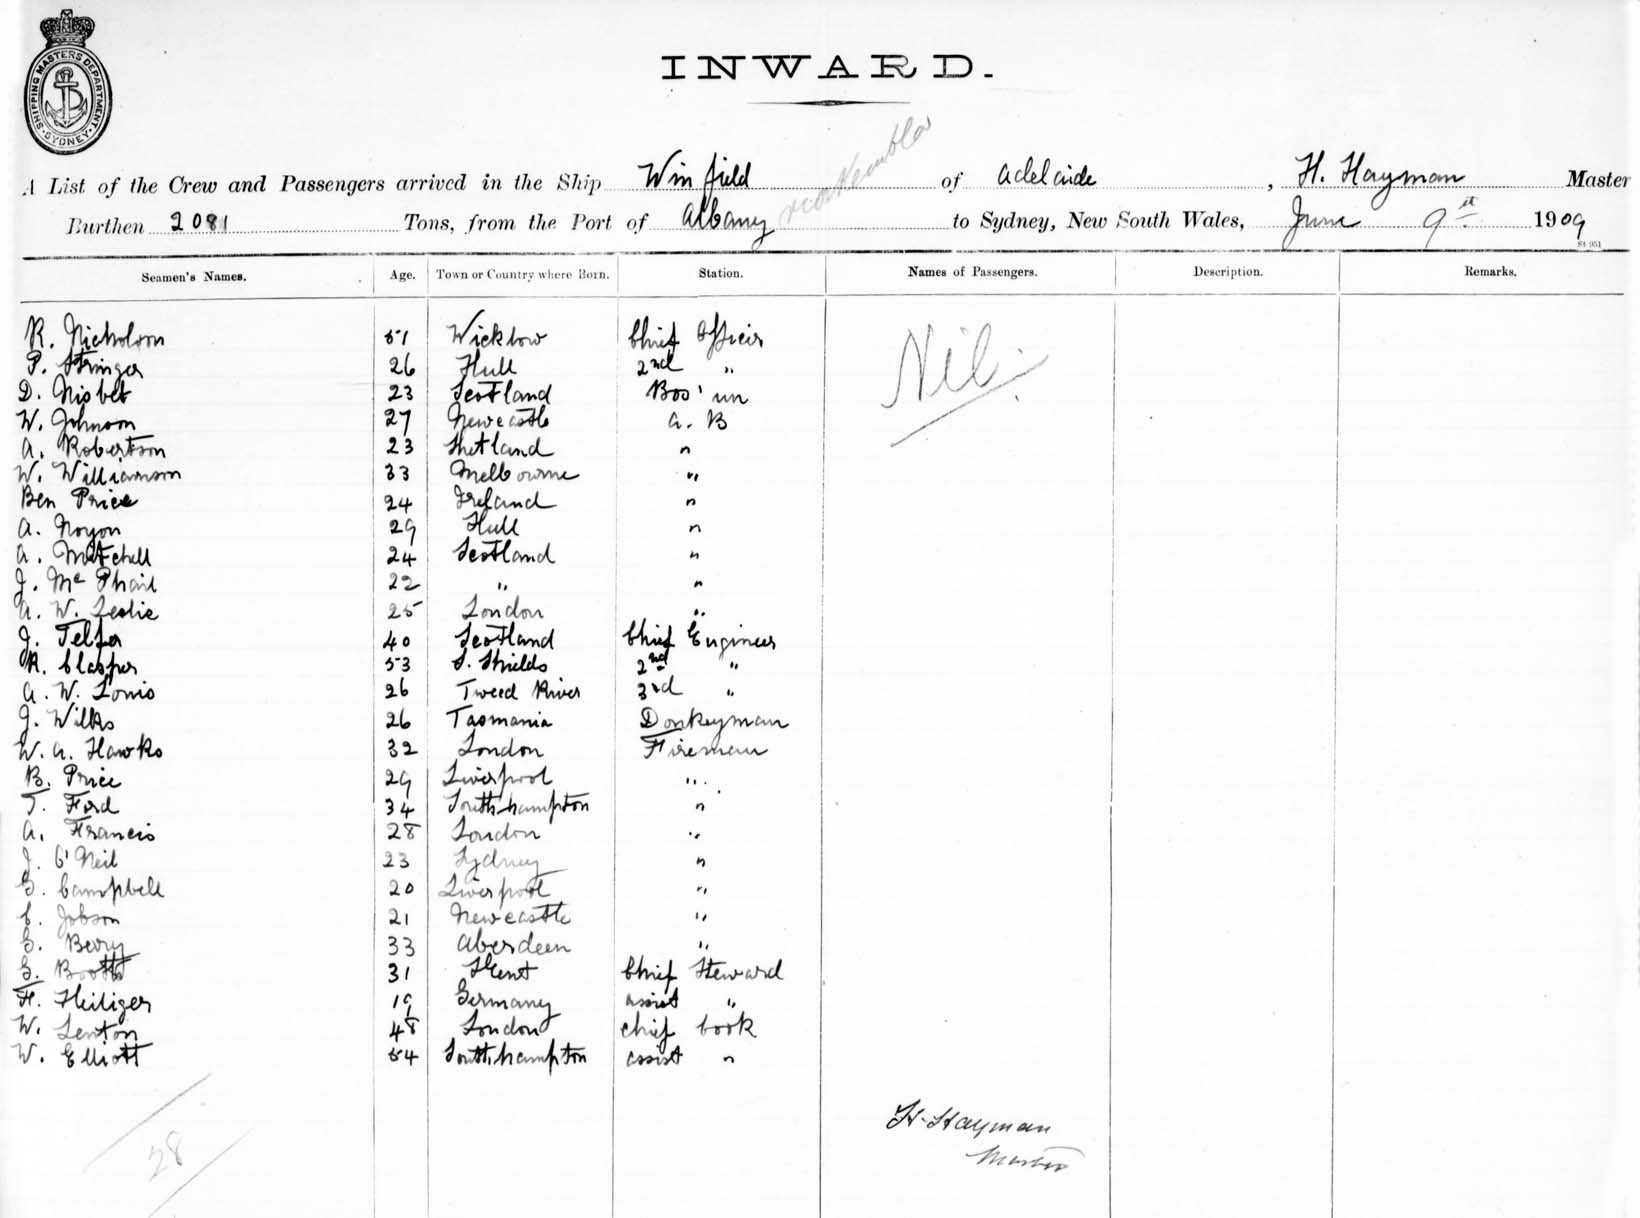 SHIPPING MASTERS DEPARTMENT · SYDNEY ·
INWARD.
A List of the Crew and Passengers arrived in the Ship Winfield of Adelaide, H. Hayman Master
Burthen 2081 Tons, from the Port of Albany to Sydney, New South Wales, June 9th 1909
St 951
Seamen's Names. Age. Town or Country where Born. Station. Names of Passengers. Description. Remarks.
R. Nicholson 51 Wicklow Chief Officer Nil.
P. Stringer 26 Hull 2nd "
D. Nisbet 23 Scotland Bos'un
W. Johnson 27 Newcastle A. B
A. Robertson 23 Shetland "
W. Williamson 33 Melbourne "
Ben Price 24 Ireland "
A. Noyon 29 Hull "
A. Mitchell 24 Scotland "
J. Mc Phail 22 " "
A. W. Leslie 25 London "
J. Telfer 40 Scotland Chief Engineer
R. Clasper 53 S. Shields 2nd "
A. W. Lonis 26 Tweed River 3rd "
J. Wilks 26 Tasmania Donkeyman
W. A. Hawks 32 London Fireman
B. Price 29 Liverpool "
T. Ford 34 Southhampton "
A. Francis 28 London "
J. O'Neil 23 Sydney "
G. Campbell 20 Liverpool "
C. Jobson 21 Newcastle "
G. Berry 33 Aberdeen "
G. Booth 31 Kent Chief Steward
H. Heiliger 19 Germany assist "
W. Lenton 48 London chief Cook
W. Elliott 54 Southhampton assist "
28
H. Hayman
Master